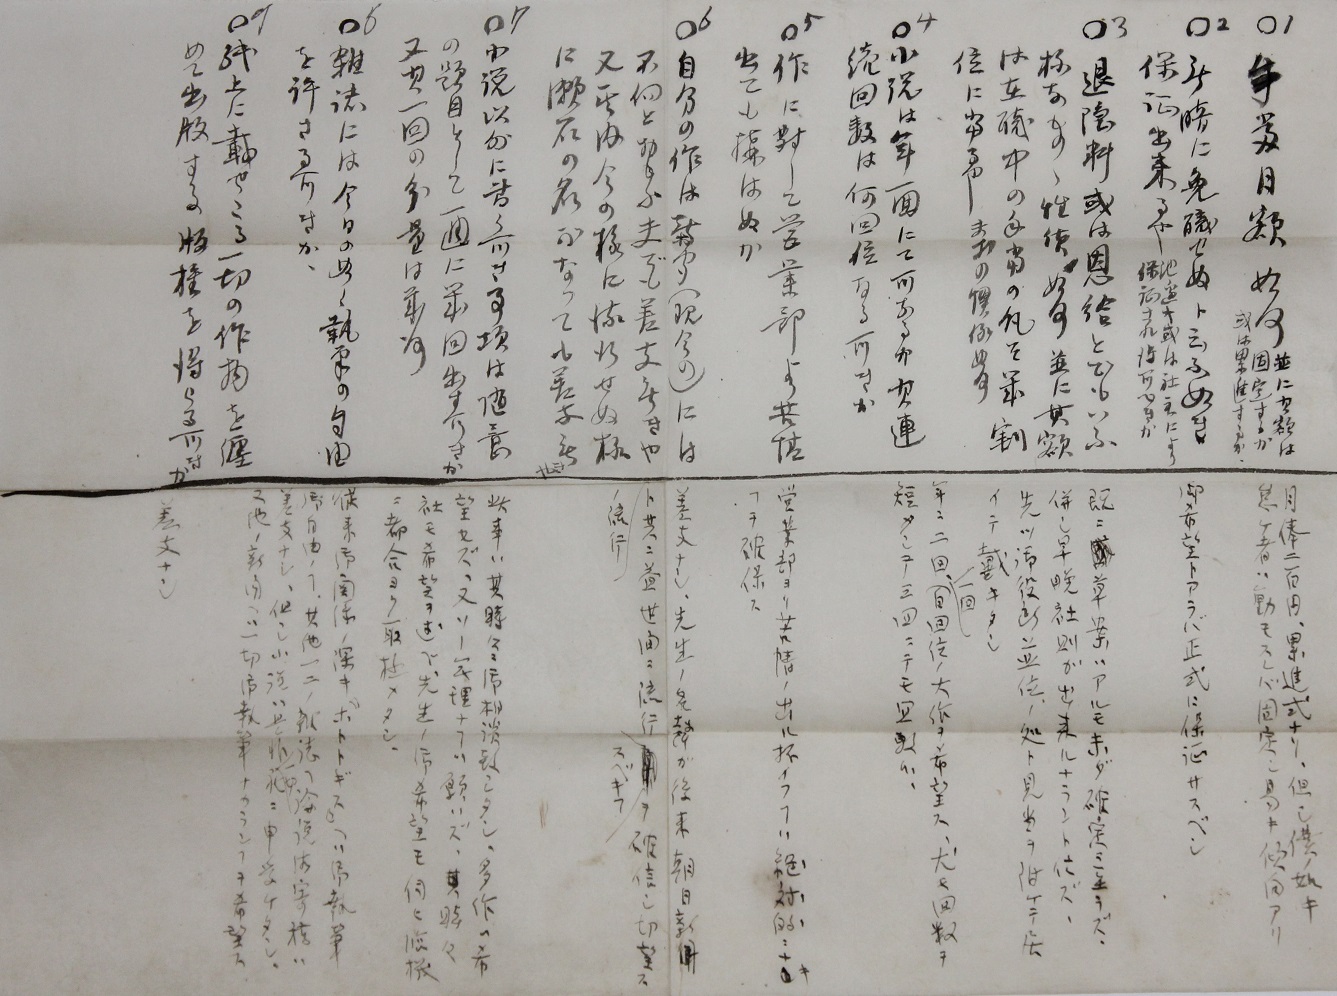 ○1 手当月額如何 並に其額は
固定するか
或は累進するか、
○2 無暗に免職せぬと云ふ如き
保証出来るや 池辺氏或は社主により
保証され得べきか
○3 退隠料或は恩給とでもいふ
様なものゝ性質如何 並に其額
は在職中の手当の凡そ幾割
位に当るや 
○4 小説は年一回にて可なるか 其連
続回数は何回位なる可きか
○5 作に対して営業部より苦情
出ても構はぬか
○6 自分の作は新聞(現今の)には
不向と思ふ夫でも差支なきや
又 今の様に流行せぬ様
に漱石の名がなつても差支なき
○7 小説以外に書くべき事項は随意
の題目として一週に幾回出す可きか
又其一回の分量は幾何
○8 雑誌には今日の如く執筆の自由
を許さる可きか、
○9 紙上に載せたる一切の作物を纏
めて出版する版権を得らる可きか
月俸二百円、累進式ナリ、但し僕ノ如キ
怠ケ者ハ動モスレバ固定シ易キ傾向アリ
御希望トアラバ正式に保証サスベシ
既ニ草案ハアルモ未ダ確定ニ至ラズ、
併し早晩社則が出来ルナラント信ズ、
先ヅ御役所並位ノ処ト見当ヲ附ケテ居
イテ戴キタシ
年ニ二回、一回百回位ノ大作ヲ希望ス、尤モ回数ヲ
短メテ三回ニテモ宜敷い、
営業部ヨリ苦情ノ出ル杯イフハ絶対的ニ
ヲ確保ス
差支ナシ、先生ノ名声が後来朝日新聞
ト共ニ益世間ニ流行スベキヲ確信シ切望ス
流行
此事ハ其時々ニ御相談致シタシ、多作ハ希
望セズ、又ソー無理ナ事ハ願ハズ、其時々
社モ希望ヲ述ベ先生ノ御希望モ伺ヒ臨機
ニ都合ヨク取極メタシ、
従来御関係ノ深キホトトギスへハ御執筆
御自由ノ事、其他一二ノ雑誌へ論説御寄稿ハ
差支ナシ、但し小説ハ是非 ニ申受ケタシ、
又他ノ新聞ニハ一切御執筆ナカラン事ヲ希望ス
差支ナシ